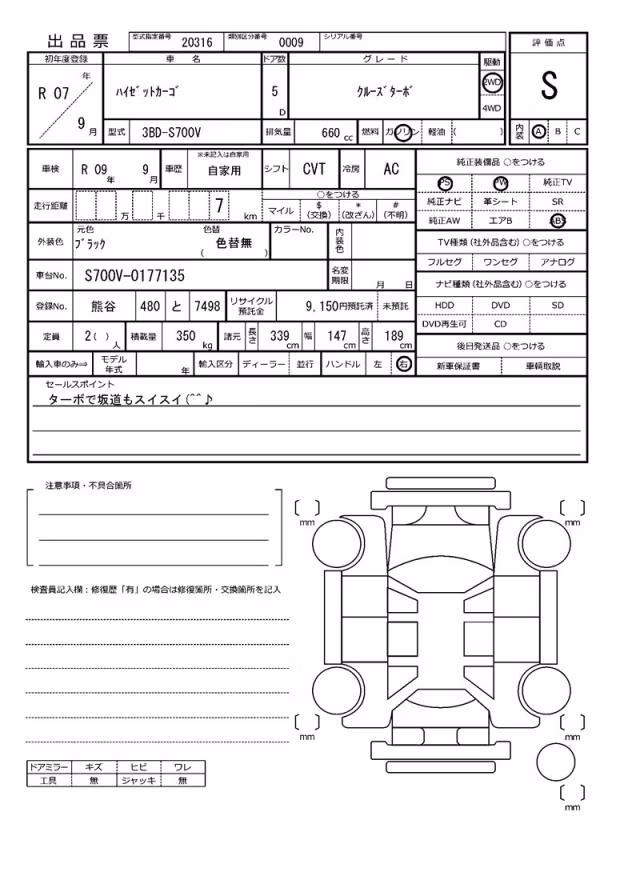 出品票
型式指定番号 20316 類別区分番号 0009 シリアル番号
評価点
S
初年度登録 車名 ドア数 グレード 駆動
R 07 年 9 月
ﾊｲｾﾞｯﾄｶｰｺﾞ 5 D ｸﾙｰｽﾞﾀｰﾎﾞ 2WD
4WD
型式 3BD-S700V 排気量 660 cc 燃料 ガソリン 軽油 ( )
内装 A B C
車検 R 09 年 9 月 車歴 ※未記入は自家用 自家用 シフト CVT 冷房 AC
走行距離 万 千 7 km
○をつける
マイル $(交換) *(改ざん) #(不明)
外装色 元色 ﾌﾞﾗｯｸ 色替 色替無 ( ) カラーNo. 内装色
車台No. S700V-0177135 名変期限 月 日
登録No. 熊谷 480 と 7498 リサイクル預託金 9,150円預託済 未預託
定員 2( ) 人 積載量 350 kg 諸元 長さ 339 cm 幅 147 cm 高さ 189 cm
輸入車のみ⇒ モデル年式 年 輸入区分 ディーラー 並行 ハンドル 左 右
純正装備品 ○をつける
PS PW 純正TV
純正ナビ 革シート SR
純正AW エアB ABS
TV種類 (社外品含む) ○をつける
フルセグ ワンセグ アナログ
ナビ種類 (社外品含む) ○をつける
HDD DVD SD
DVD再生可 CD
後日発送品 ○をつける
新車保証書 車輌取説
セールスポイント
ターボで坂道もスイスイ(^^♪
注意事項・不具合箇所
検査員記入欄：修復歴「有」の場合は修復箇所・交換箇所を記入
ドアミラー キズ ヒビ ワレ
工具 無 ジャッキ 無
mm mm
mm mm
mm